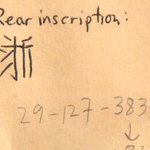 Rear inscription:
29-127-383
↓